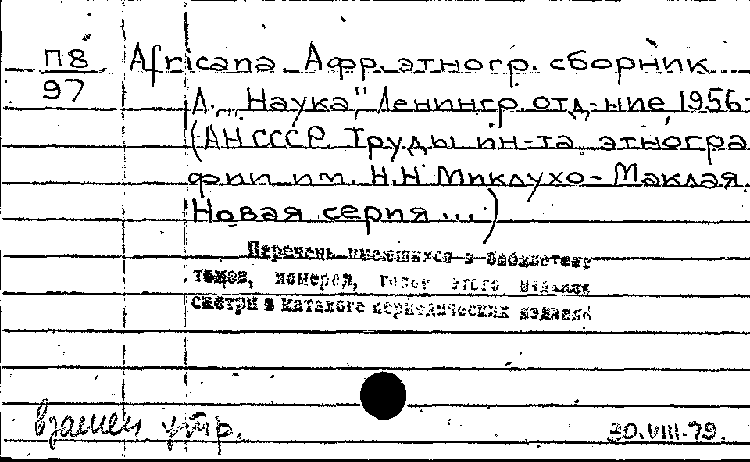 П8 Africana Афр. этногр. сборник
97
Л., „Наука", Ленингр. отд-ние, 1956-
(АН СССР. Труды ин-та этногра
фии им. Н.Н Миклухо-Маклая.
Новая серия ...)
Перечень имеющихся в библиотеке
томов, номеров, годов этого издания
смотри в каталоге периодических изданий
взамен утр. 30.VIII.79.